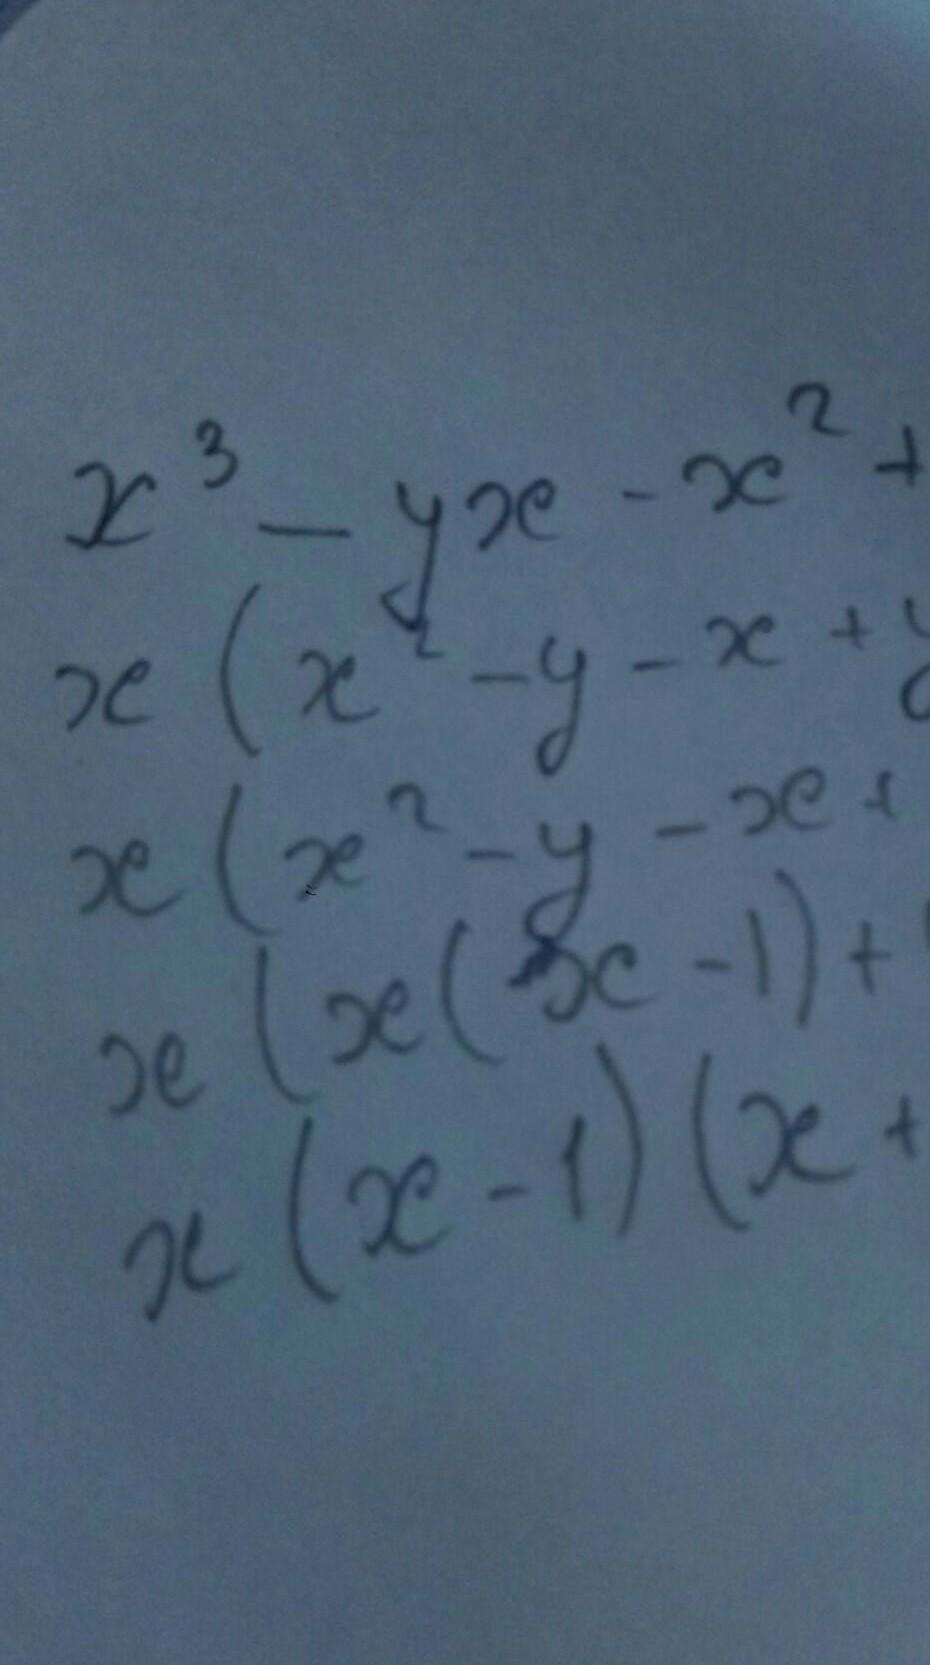 x³ - yx - x² +
x (x² - y - x + y
x (x² - y - x +
x (x(x - 1) +
x (x - 1) (x +